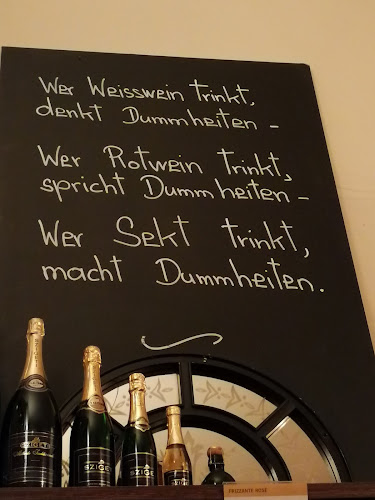 Wer Weisswein trinkt,
denkt Dummheiten -
Wer Rotwein trinkt,
spricht Dummheiten -
Wer Sekt trinkt,
macht Dummheiten.
SZIGETI
SZIGE
SZIGE
FRIZZANTE ROSÉ